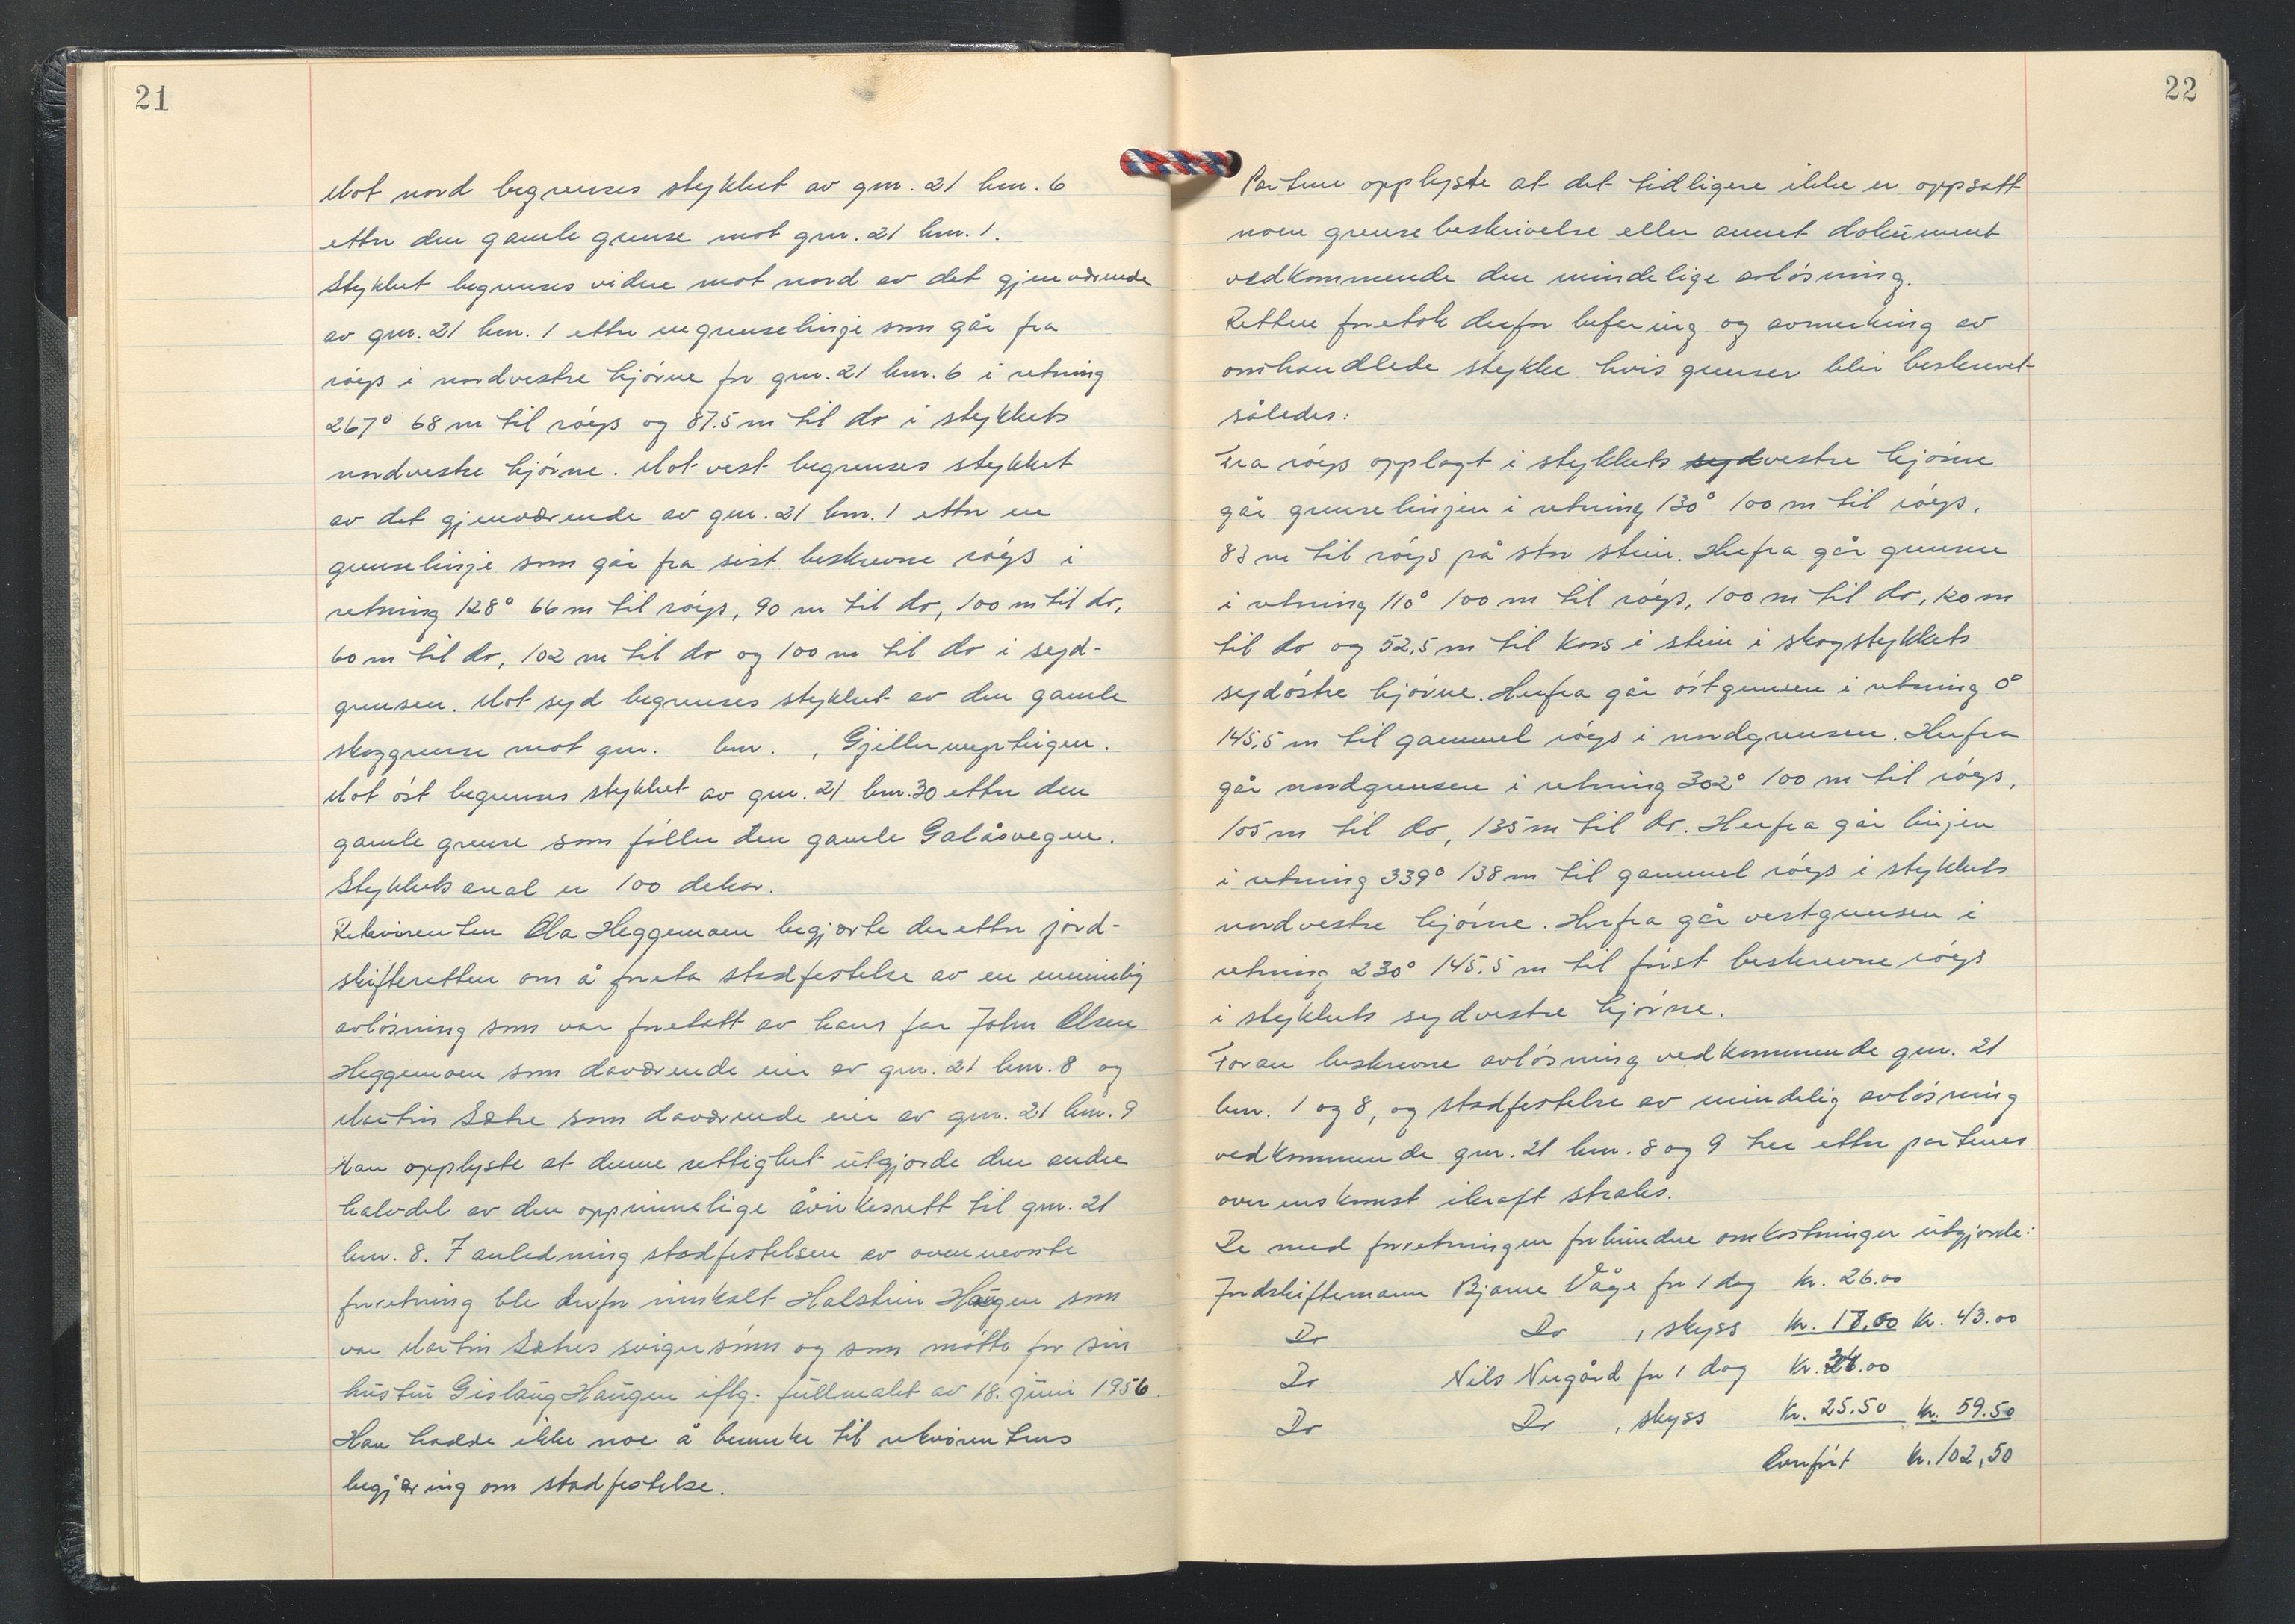 21
Mot nord begrenses stykket av gnr. 21 bnr. 6
etter den gamle grense mot gnr. 21 bnr. 1.
Stykket begrenses videre mot nord av det gjenværende
av gnr. 21 bnr. 1 etter en grenselinje som går fra
röys i nordvestre hjörne for gnr. 21 bnr. 6 i retning
267° 68 m til röys og 87.5 m til do i stykkets
nordvestre hjörne. Mot vest begrenses stykket
av det gjenværende av gnr. 21 bnr. 1 etter en
grenselinje som går fra sist beskrevne röys i
retning 128° 66 m til röys, 90 m til do, 100 m til do,
60 m til do, 102 m til do og 100 m til do i syd-
grensen. Mot syd begrenses stykket av den gamle
skoggrense mot gnr. bnr. ,
Mot öst begrenses stykket av gnr. 21 bnr. 30 etter den
gamle grense som föller den gamle Galåsvegen.
Stykkets areal er 100 dekar.
Rekvirenten Ola Heggemoen begjærte deretter jord-
skifteretten om å foreta stadfestelse av en minnelig
avlösning som var foretatt av hans far John Olsen
Heggemoen som daværende eier av gnr. 21 bnr. 8 og
Martin Sætre som daværende eier av gnr. 21 bnr. 9
Han opplyste at denne rettighet utgjorde den andre
halvdel av den opprinnelige åvirkesrett til gnr. 21
bnr. 8. I anledning stadfestelsen av ovennevnte
forretning ble derfor innkalt Halstein Haugen som
var Martin Sætres svigersönn og som mötte for sin
hustru Gislaug Haugen iflg. fullmakt av 18. juni 1956.
Han hadde ikke noe å bemerke til rekvirentens
begjæring om stadfestelse.
22
Partene opplyste at det tidligere ikke er oppsatt
noen grensebeskrivelse eller annet dokument
vedkommende den mindelige avlösning.
Retten foretok derfor befaring og avmerking av
omhandlede stykke hvis grenser blir beskrevet
således:
Fra röys opplagt i stykkets sydvestre hjörne
går grenselinjen i retning 130° 100 m til röys,
83 m til röys på stor stein. Herfra går grensen
i retning 110° 100 m til röys, 100 m til do, 120 m
til do og 52,5 m til kors i stein i skogstykkets
sydöstre hjörne. Herfra går östgrensen i retning 0°
145,5 m til gammel röys i nordgrensen. Herfra
går nordgrensen i retning 302° 100 m til röys,
105 m til do, 135 m til do. Herfra går linjen
i retning 339° 138 m til gammel röys i stykkets
nordvestre hjörne. Herfra går vestgrensen i
retning 230° 145.5 m til först beskrevne röys
i stykkets sydvestre hjörne.
Foran beskrevne avlösning vedkommende gnr. 21
bnr. 1 og 8, og stadfestelse av mindelig avlösning
vedkommende gnr. 21 bnr. 8 og 9 tree etter partenes
overenskomst ikraft straks.
De med forretningen forbundne omkostninger utgjorde:
Jordskiftemann Bjarne Våge for 1 dag kr. 26.00
Do Do , skyss kr. 17.00 kr. 43.00
Do Nils Nergård for 1 dag kr. 34.00
Do Do , skyss kr. 25.50 kr. 59.50
Overfört kr. 102,50